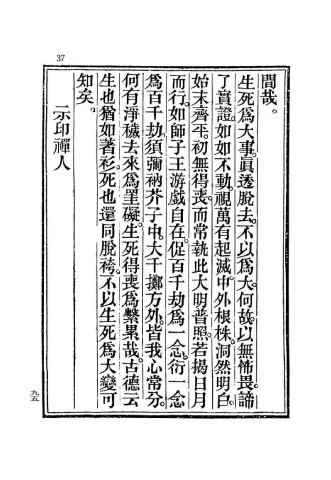 37
間哉。
生死爲大事。眞透脫去。不以爲大。何故。以無怖畏。諦
了眞證。如如不動。視萬有起滅。中外根株。洞然明白。
始末齊平。初無得喪。而常執此大明普照。若揭日月
而行。如師子王游戲自在。促百千劫爲一念。衍一念
爲百千劫。須彌衲芥子中。大千擲方外。皆我心常分。
何有淨穢去來爲罣礙。生死得喪爲繫累哉。古德云
生也猶如著衫。死也還同脫袴。不以生死爲大變。可
知矣。
示印禪人
九五